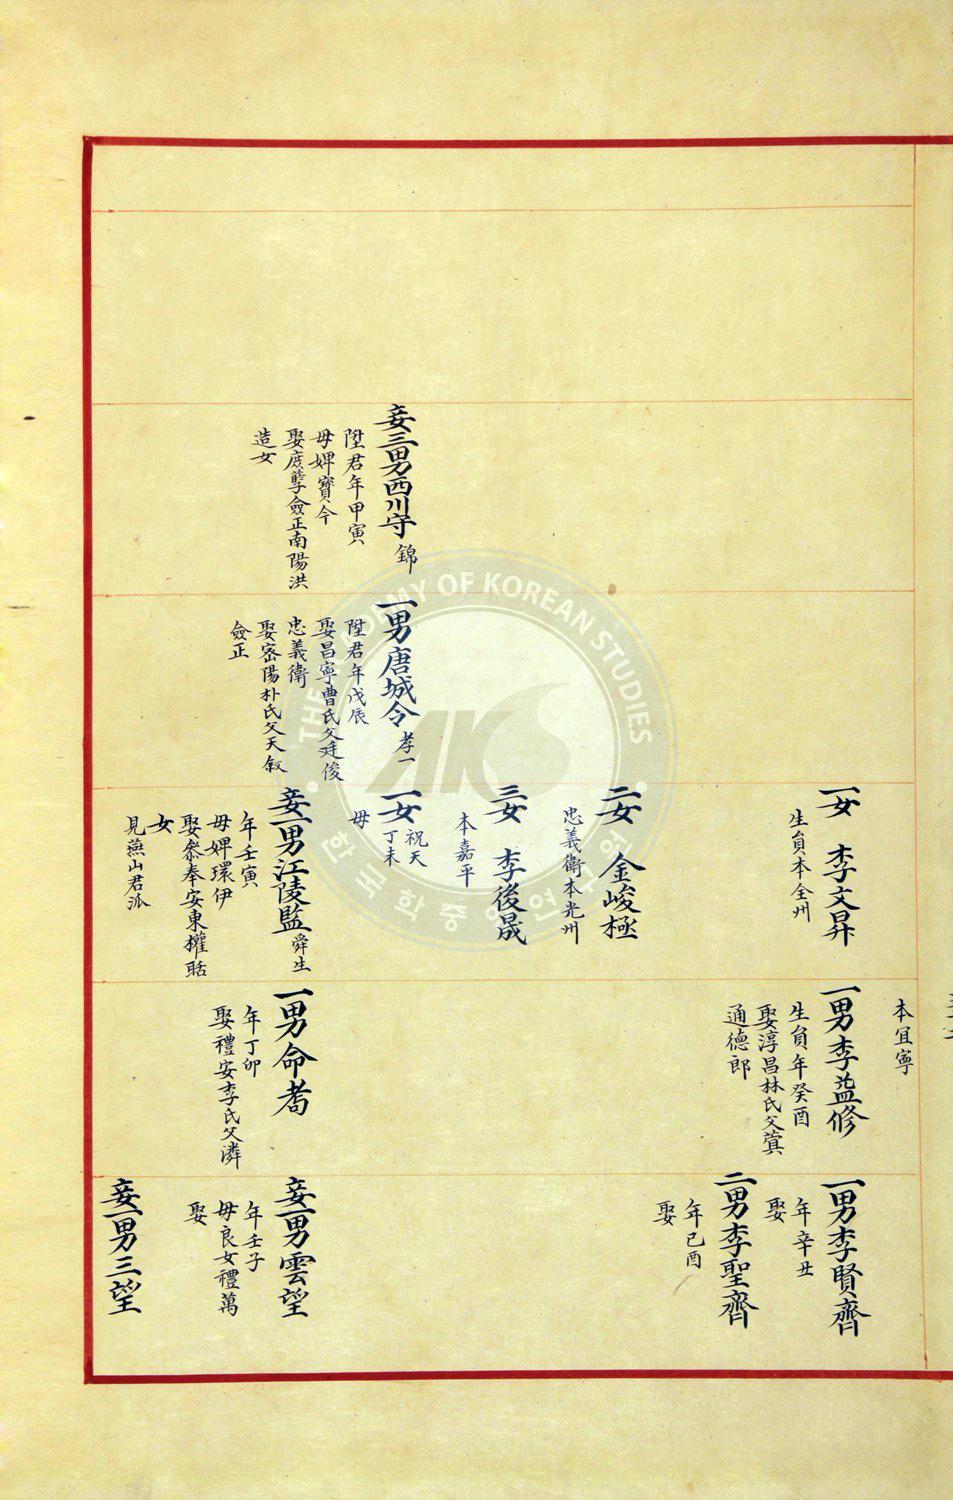 妾三男西川守 錦
陞君年甲寅
母婢寶今
娶庶孽僉正南陽洪
造女
一男唐城令 孝一
陞君年戊辰
娶昌寧曺氏父廷俊
忠義衛
娶密陽朴氏父天敘
僉正
一女 李文昇
生員本全州
二女 金峻極
忠義衛本光州
三女 李後晟
本嘉平
一女 祝天
丁未
母
妾一男江陵監 舜生
年壬寅
母婢環伊
娶叅奉安東權聒
女
見燕山君派
本宜寧
一男李益修
生員年癸酉
娶淳昌林氏父蓂
通德郎
一男命耇
年丁卯
娶禮安李氏父潾
一男李賢齊
年辛丑
娶
二男李聖齊
年己酉
娶
妾一男雲望
年壬子
母良女禮萬
娶
妾一男三望
THE ACADEMY OF KOREAN STUDIES
AKS
한국학중앙연구원